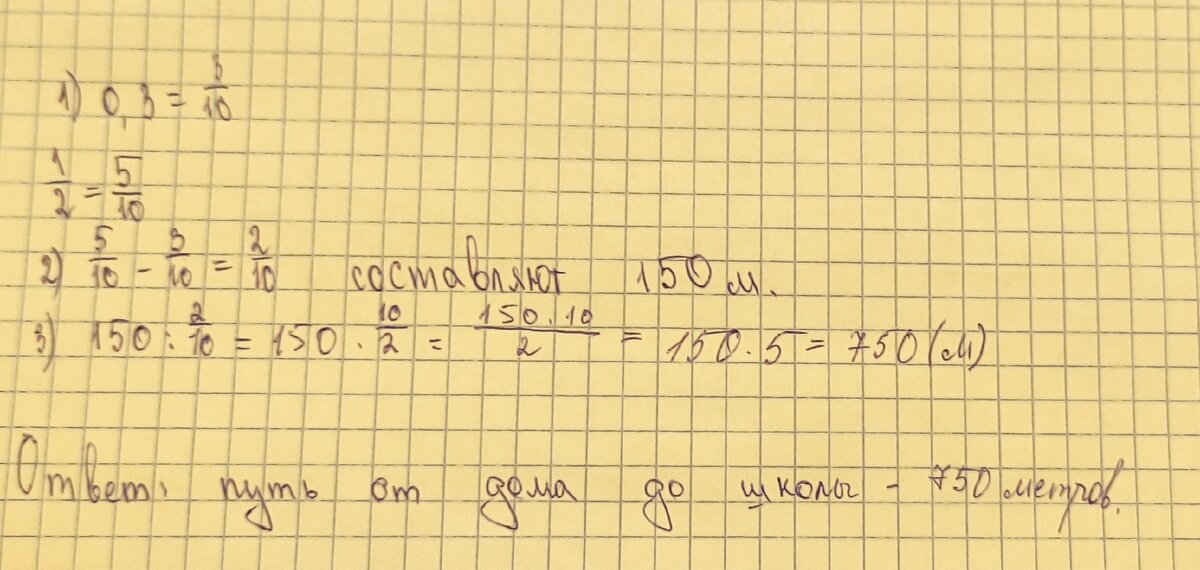 1) 0,3 = 3/10
1/2 = 5/10
2) 5/10 - 3/10 = 2/10 составляют 150 м.
3) 150 : 2/10 = 150 · 10/2 = 150·10/2 = 150·5 = 750 (м)
Ответ: путь от дома до школы - 750 метров.